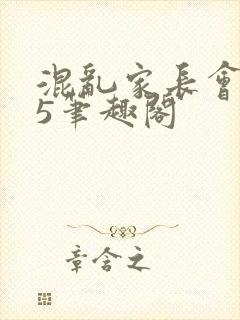 混亂家長會
5筆趣閣
章含之